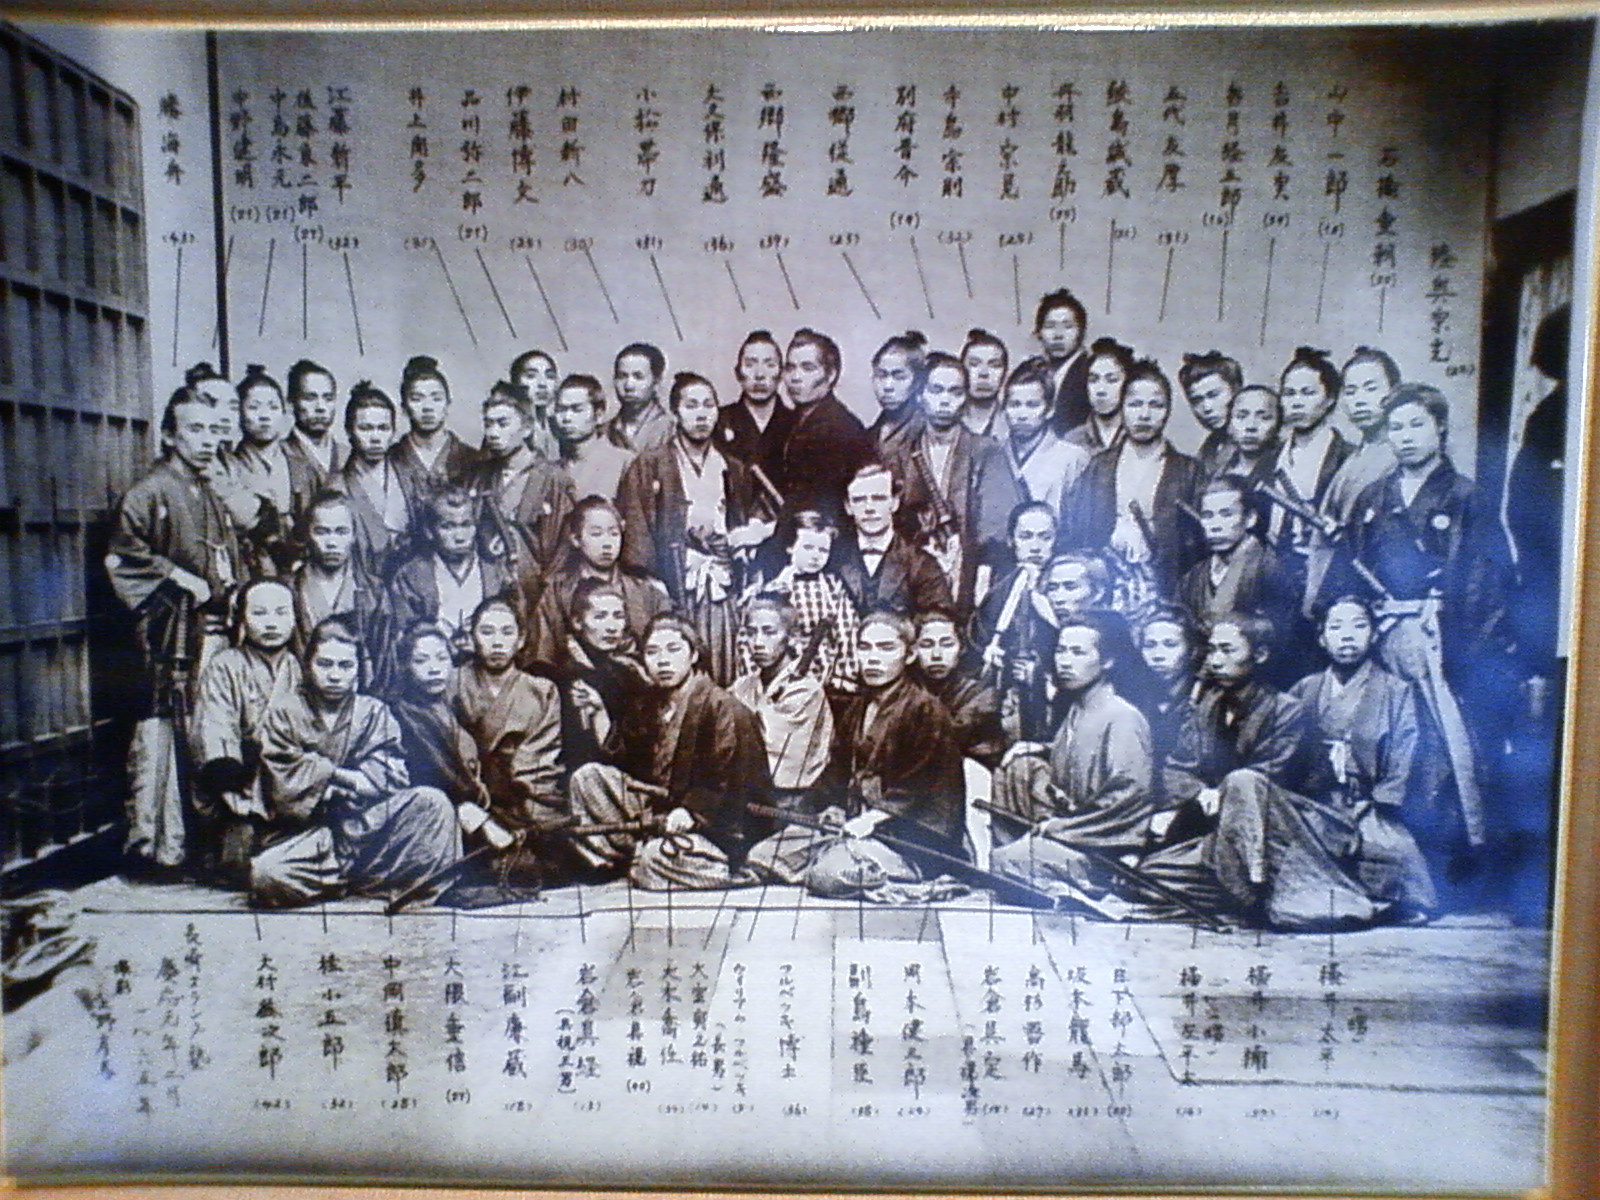 陸奥宗光
石橋重朝
(22)
山中一郎
(18)
吉井友実
(39)
香月経五郎
(16)
五代友厚
(31)
鮫島誠蔵
(21)
丹羽龍之助
中村宗見
(25)
寺島宗則
(32)
別府晋介
(19)
西郷従道
(23)
西郷隆盛
(39)
大久保利通
(36)
小松帯刀
(31)
村田新八
(30)
伊藤博文
(25)
品川弥二郎
井上聞多
(31)
江藤新平
(32)
後藤象二郎
(27)
中島永元
(21)
中野健明
(21)
勝海舟
(43)
横井太平
横井小楠
横井左平太
日下部太郎
坂本龍馬
(31)
高杉晋作
(27)
岩倉具定
(具視次男)
岡本健三郎
(24)
副島種臣
(38)
フルベッキ博士
(36)
ウイリアム フルベッキ
大室寅之祐
(長男)
大木喬任
(34)
岩倉具視
(40)
岩倉具経
(具視三男)
(13)
江副廉蔵
(18)
大隈重信
(27)
中岡慎太郎
(28)
桂小五郎
(32)
大村益次郎
(42)
長崎
慶応元年二月
一八六五年
撮影 上野彦馬